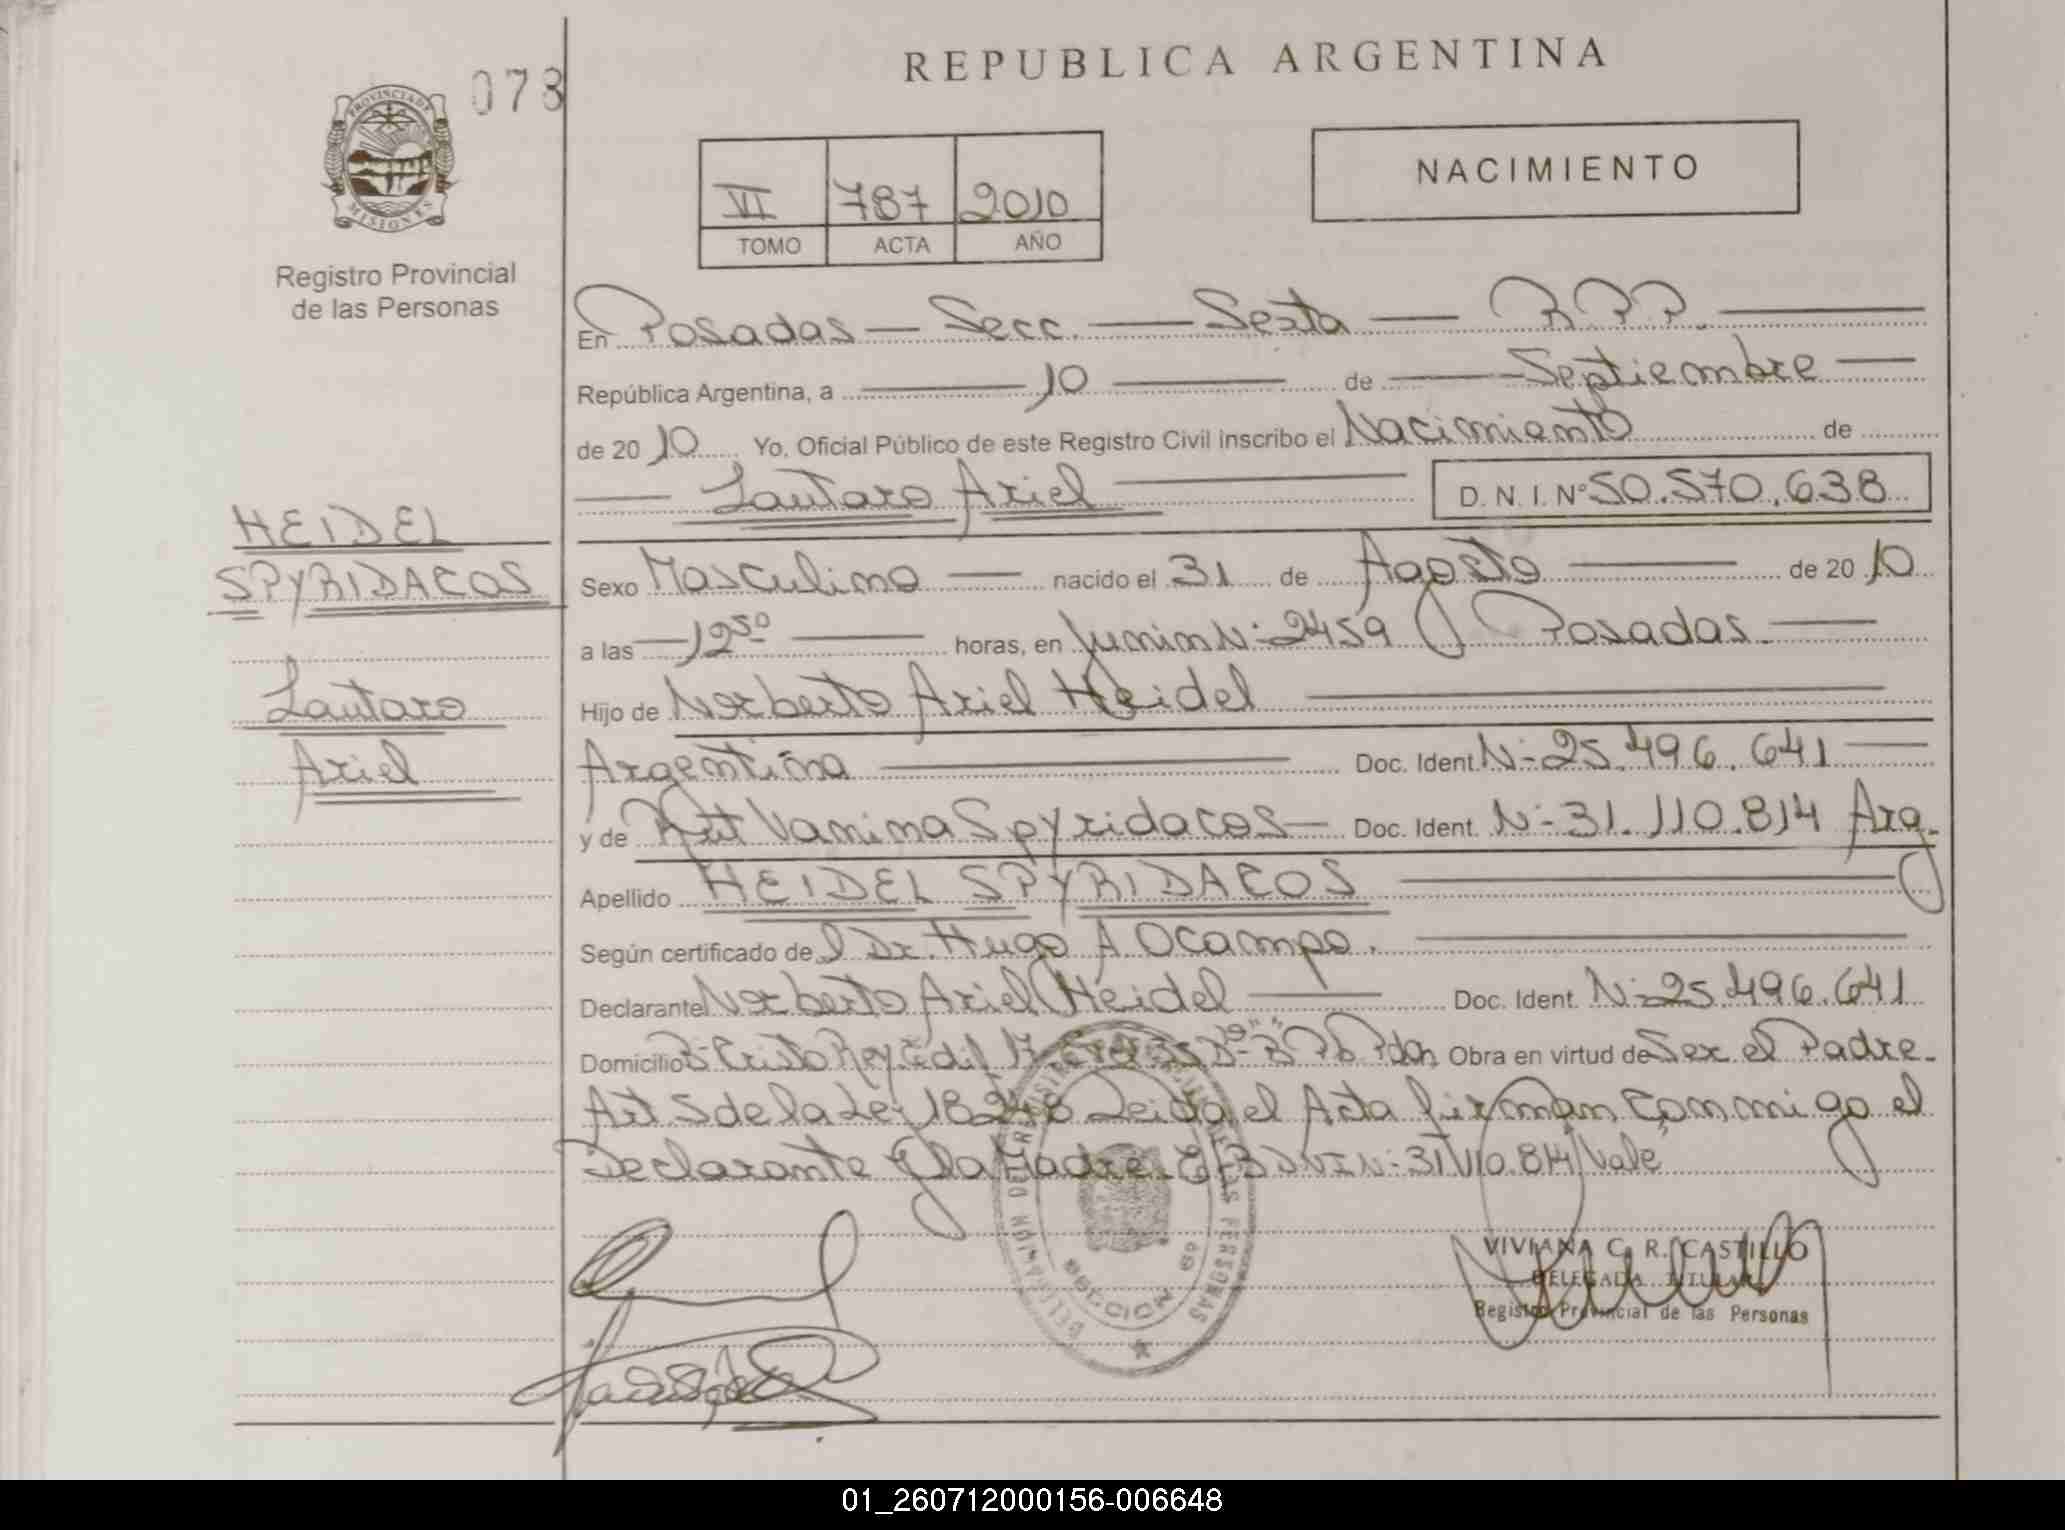 078
REPUBLICA ARGENTINA
PROVINCIA DE
MISIONES
Registro Provincial
de las Personas
VI 787 2010
TOMO ACTA AÑO
NACIMIENTO
En Posadas — Secc. — Sexta — R.P.P.
República Argentina, a — 10 — de — Septiembre —
de 2010 Yo, Oficial Público de este Registro Civil inscribo el Nacimiento de
— Lautaro Ariel — D. N. I. Nº 50.570.638
HEIDEL
SPYRIDACOS
Lautaro
Ariel
Sexo Masculino — nacido el 31 de Agosto — de 2010
a las — 12 50 — horas, en Junin Nº 2459 Posadas. —
Hijo de Norberto Ariel Heidel —
Argentina — Doc. Ident. Nº 25.496.641 —
y de Rut Vanina Spyridacos — Doc. Ident. Nº 31.110.814 Arg.
Apellido HEIDEL SPYRIDACOS —
Según certificado del Dr. Hugo A Ocampo. —
Declarante Norberto Ariel Heidel — Doc. Ident. Nº 25.496.641
Domicilio Bº Cristo Rey Obra en virtud de Ser el Padre.
Art 5 de la Ley 18248 Leida el Acta firman conmigo el
Declarante y la Madre. 31.110.814 Vale
SECCION 6ª
VIVIANA C. R. CASTILLO
DELEGADA TITULAR
Registro Provincial de las Personas
01_260712000156-006648